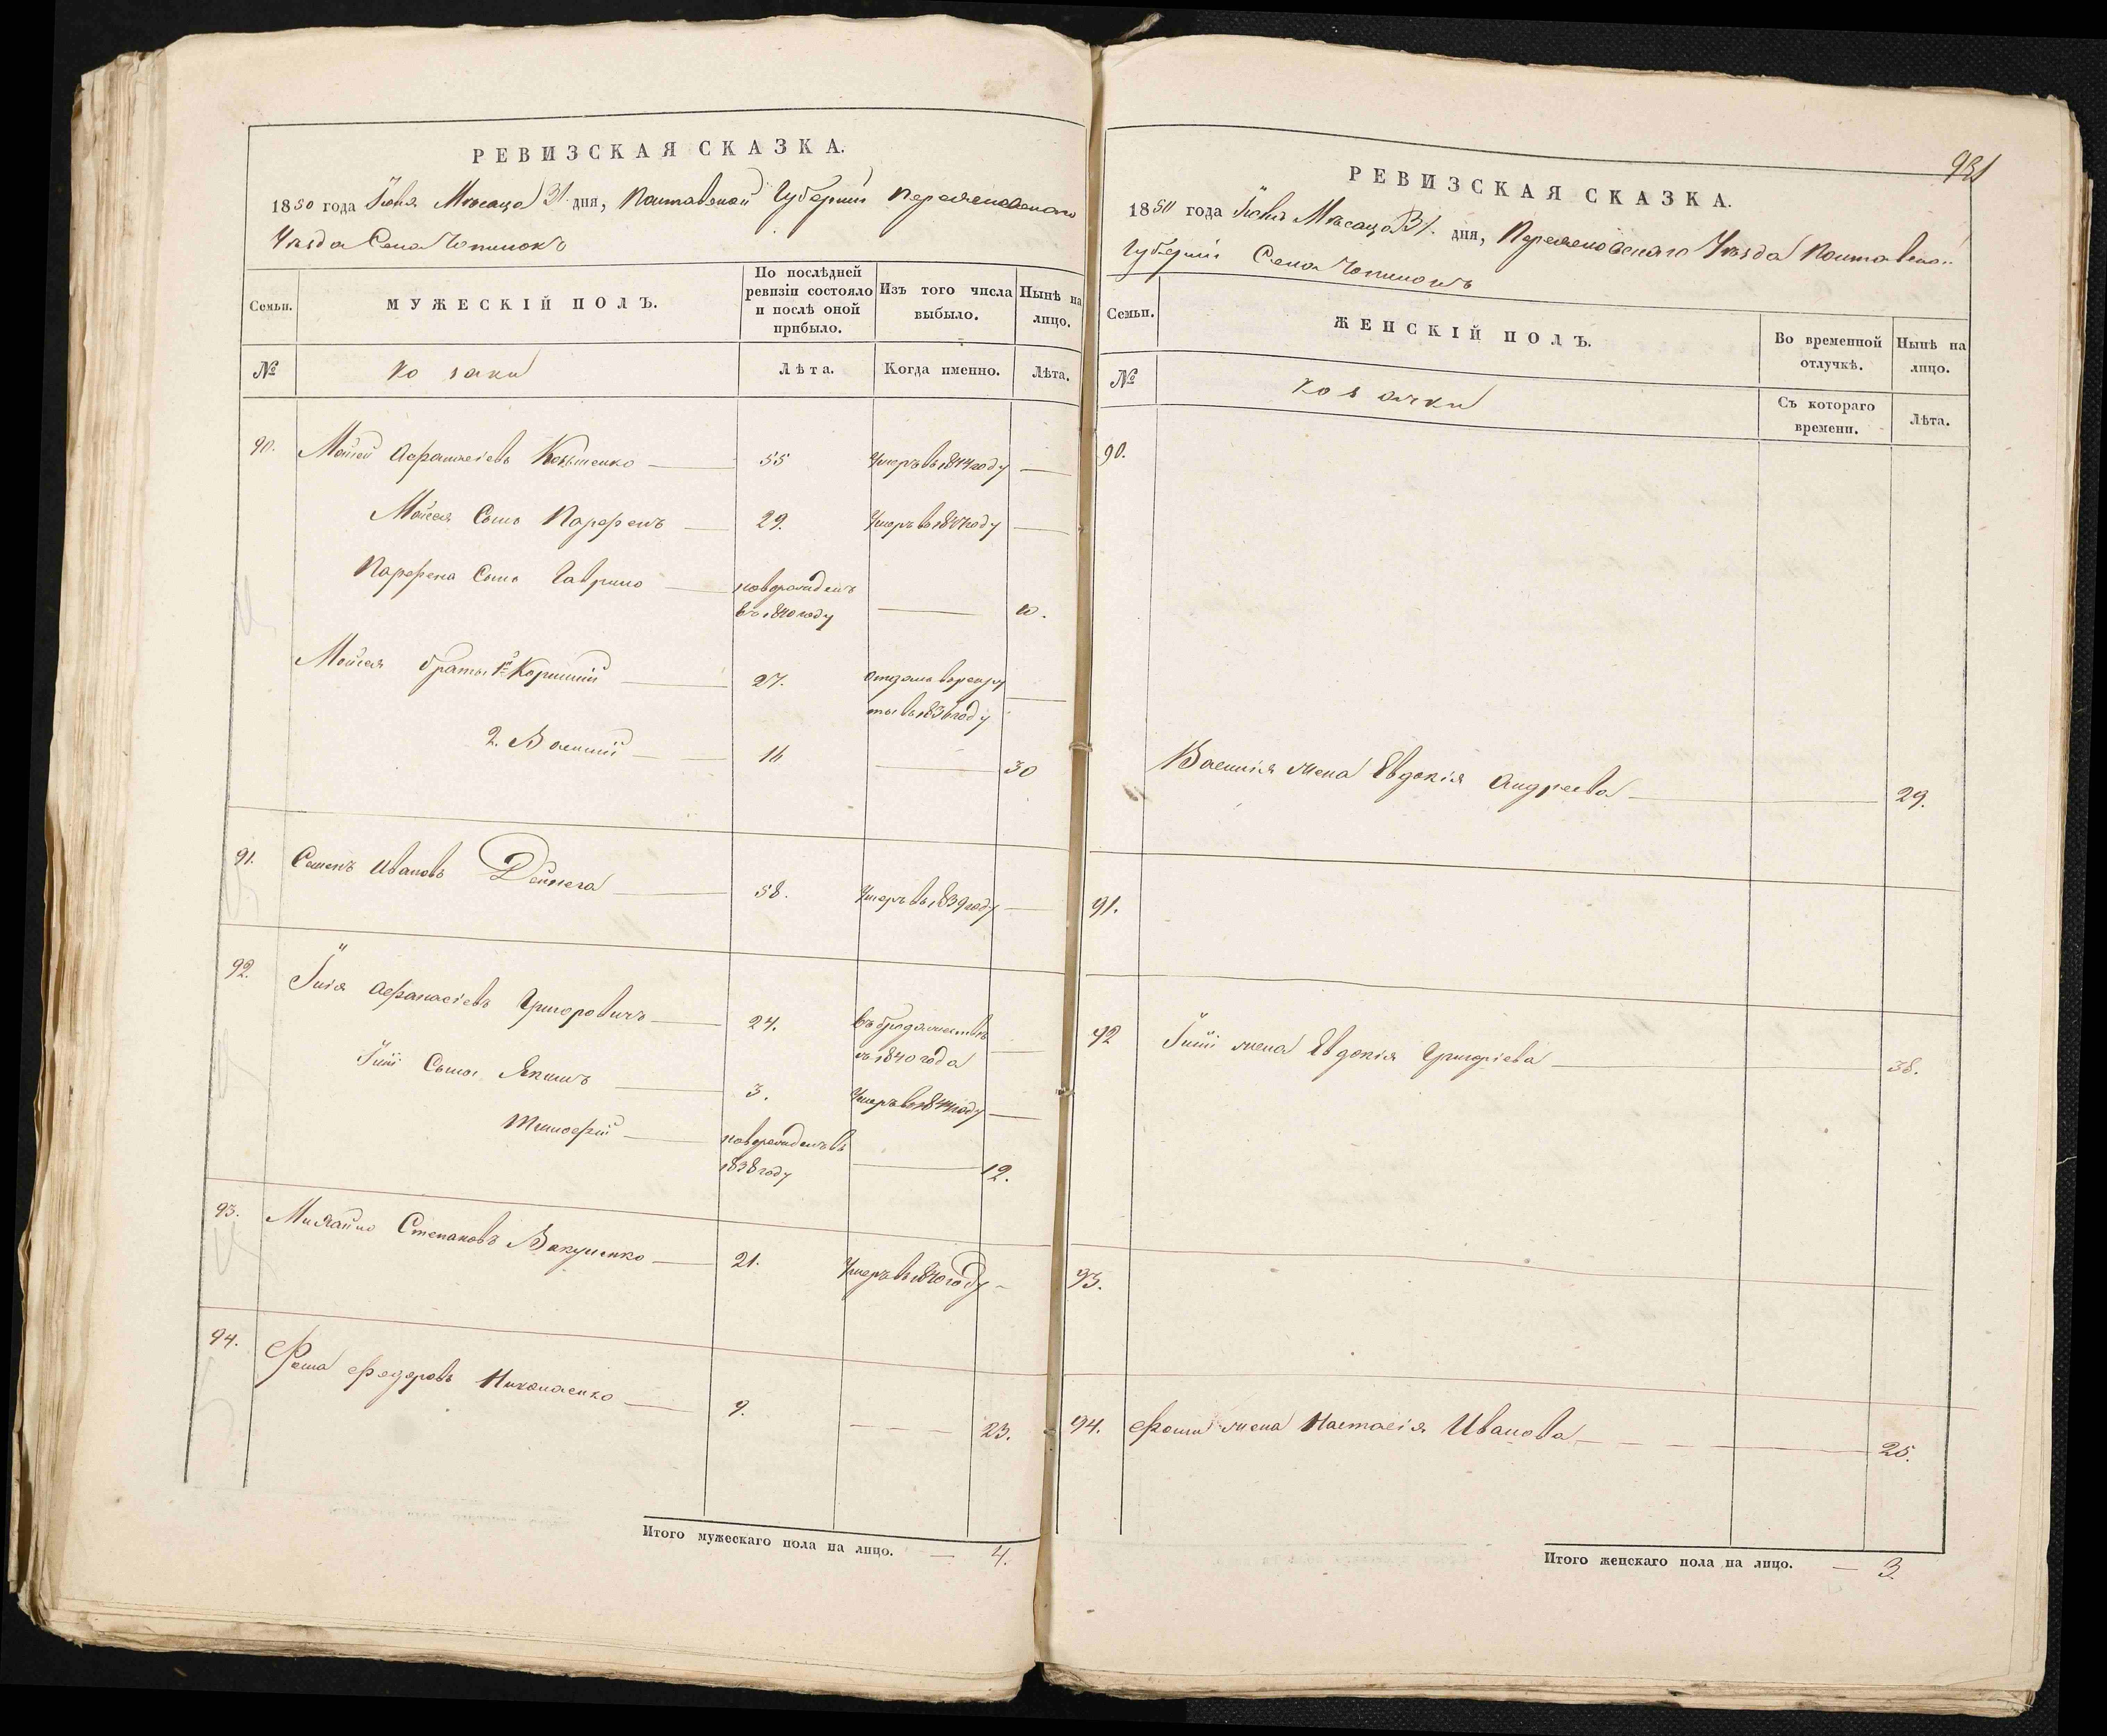 РЕВИЗСКАЯ СКАЗКА.
1850 года Июля Мѣсяца 31 дня, Полтавской Губерніи Переясловского
Уѣзда Села Чопилокъ
Семьи.
МУЖЕСКІЙ ПОЛЪ.
По послѣдней ревизіи состояло и послѣ оной прибыло.
Изъ того числа выбыло.
Нынѣ на лицо.
№
козаки
Лѣта.
Когда именно.
Лѣта.
90. Мойсей Афанасіевъ 55 Умеръ въ 1844 году —
Мойсея Сынъ Парфенъ 29. Умеръ въ 1847 году —
Парфена Сынъ Гаврило новорожденъ
въ 1840 году — 10.
Мойсея братья 1й Корнилій 27. Отданъ в рекру
ты въ 1836 году —
2. Василий 16 — 30
91. Семенъ Ивановъ Дейнега 58. Умеръ въ 1839 году —
92. Илія Афанасіевъ Григоровичъ 24. въ бродяжествѣ
съ 1840 года —
Иліи Сынъ Якимъ 3. Умеръ въ 1844 году —
Тимофій новорожденъ въ
1838 году — 12.
93. Михайло Степановъ Вакуленко 21. Умеръ въ 1840 году —
94. Фома Федоровъ Николаенко 9. — — — 23.
Итого мужескаго пола на лицо. — 4.
931
РЕВИЗСКАЯ СКАЗКА.
1850 года Июля Мѣсяца 31. дня, Переясловского Уѣзда Полтавской
Губерніи Села Чопилокъ
Семьи.
ЖЕНСКІЙ ПОЛЪ.
Во временной отлучкѣ.
Нынѣ на лицо.
№
козачки
Съ котораго времени.
Лѣта.
90.
Василія жена Евдокія Андреева — 29.
91.
92 Иліи жена Евдокія Григоріева — 38.
93.
94. Фомы жена Настасія Иванова — 25.
Итого женскаго пола на лицо. — 3.